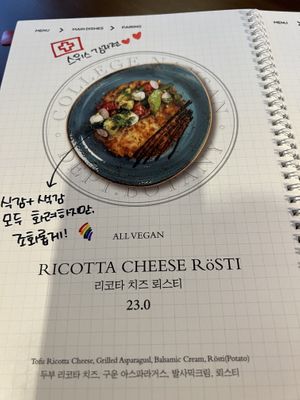 MENU > MAIN DISHES > PAIRING
MENU
스위스 감자전
COLLEGE N
식감+색감
모두 화려하지만,
조화롭게!
ALL VEGAN
RICOTTA CHEESE RöSTI
리코타 치즈 뢰스티
23.0
Tofu Ricotta Cheese, Grilled Asparagusl, Balsamic Cream, Rösti(Potato)
두부 리코타 치즈, 구운 아스파라거스, 발사믹크림, 뢰스티